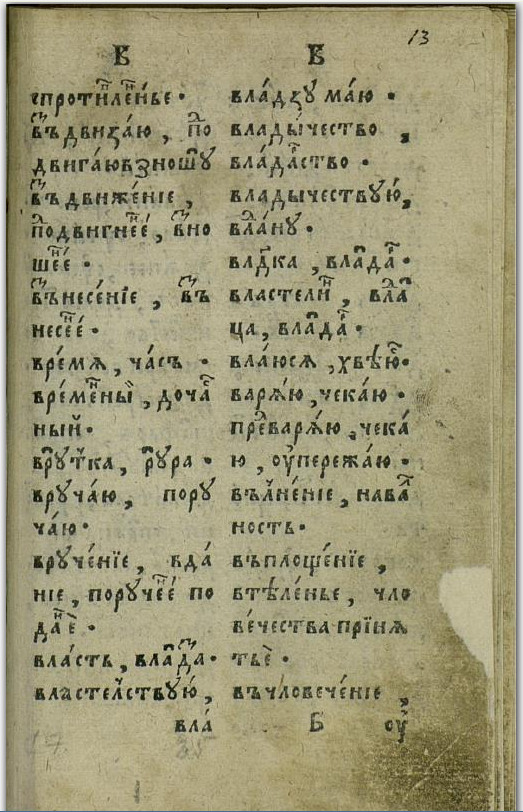 13
В В
спротивле́нье.
въздвиза́ю, по
двига́ю взношу
въздвиже́нїе,
подвигнене́, взно
шене́.
възнесе́нїе, въз
несене́.
вре́мѧ, ча́съ.
вре́менный, доча́с
ный.
вруча́ю, пору
ча́ю.
вруче́нїе, вда́
нїе, порученье́ по
данѐ.
вла́сть, влада.
властелствую́,
вла́
вла́дзу ма́ю.
влады́чество,
вла́дство.
владычествую́,
вла́ну.
влдка, влада́р.
властели́н, влас
ца, влада́р.
вла́юсѧ, хвѣю́с.
варѧ́ю, чека́ю.
предварѧ́ю, чека́
ю, оу҆пережа́ю.
вълне́нїе, нава́л
ность.
въплоще́нїе,
втѣле́нье, чло
ве́чества прїнѧ
тьѐ.
въчловече́нїе,
Б оу҆